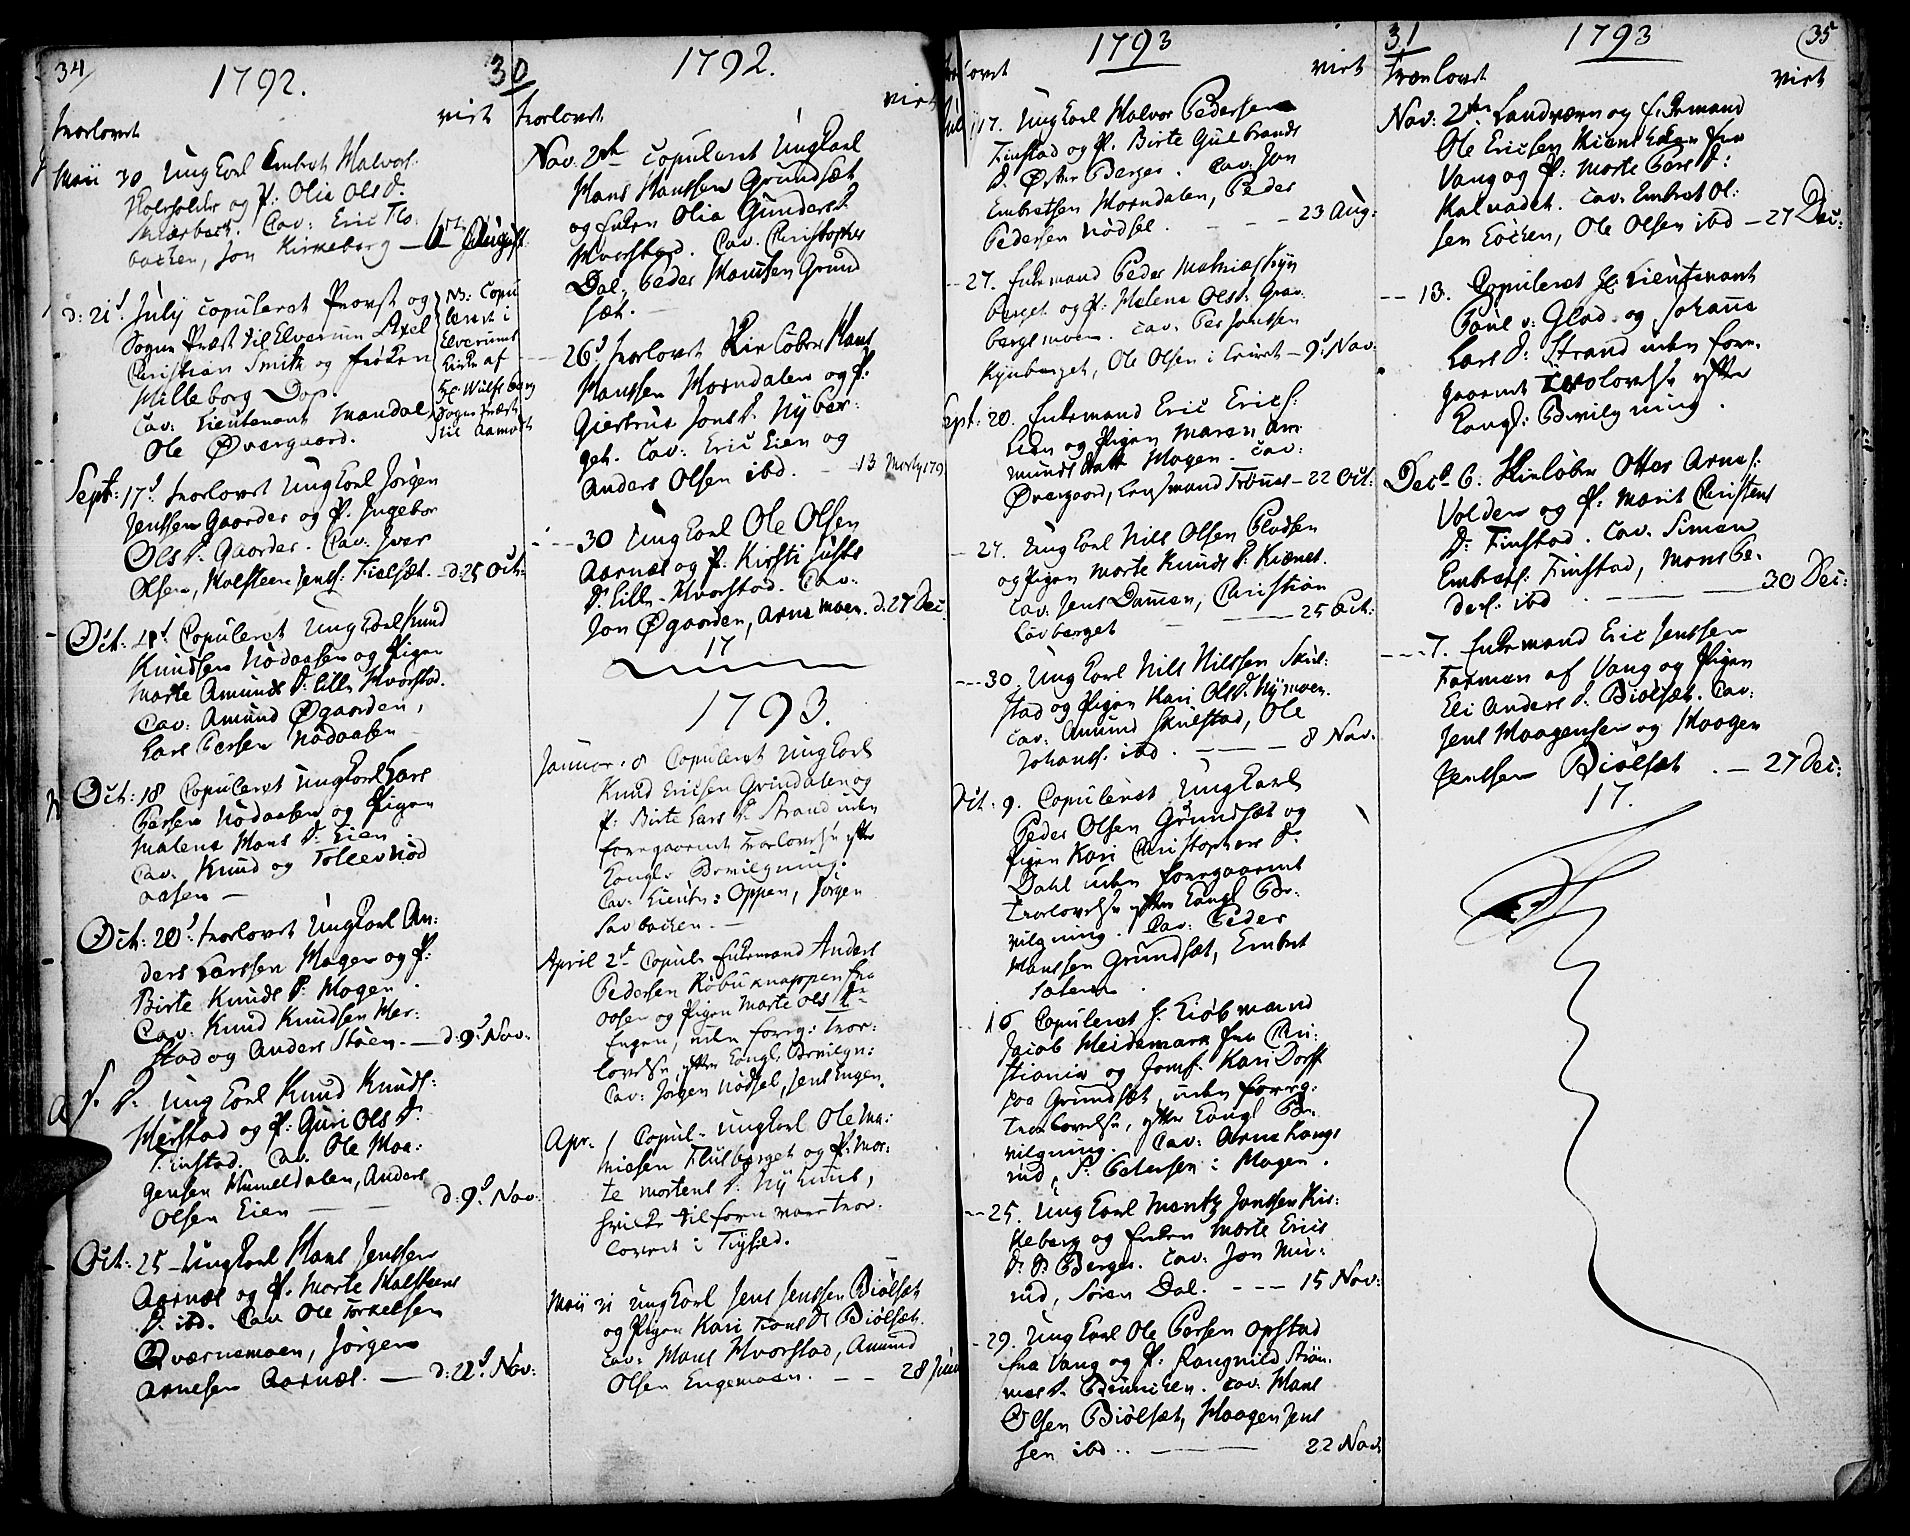 34
1792.
30
Trorlovet
viet
Maii 30 Ung Karl Embret Halvors:
Kolesolder og P: Olia Ols D:
Skiærbech. Cav: Eric Flo:
bachen, Jon Kirkeberg — 6te August
d: 21d July copuleret Provst og
Sogne Præst til Elverum Axel
Christian Smith og Frøken
Milleborg Dop.
Cav: Lieutenant Mandal
Ole Øvergaard.
NB: Copu
leret i
Elverums
Kirke af
Hr Wulfsberg
Sogne Præst
til Aamodt
Sept: 17d Trorlovet Ung Karl Jørgen
Jenssen Gaarder og P. Ingebor
Ols D: Gaarder. Cav: Iver
Olsen, Holsteen Jens: Fielset. - d: 25 Oct:
Oct: 11d Copuleret Ung Karl Knud
Knudsen Nödaasen og Pigen
Morte Amunds D: Lille Hvorstad.
Cav: Amund Øgaarden,
Lars Persen Nödaasen
Oct: 18 Copuleret Ung Karl Lars
Persen Nödaasen og Pigen
Malene Hans D: Eien.
Cav: Knud og Tollev Nöd
aasen —
Oct: 20d: Trorlovet Ung Karl An:
ders Larssen Mogen og P:
Birte Knuds D: Mogen.
Cav: Knud Knudsen Her:
stad og Anders Støen. — d: 9d Nov:
d. D. Ung Karl Knud Knuds:
Herstad og P: Guri Ols D:
Finstad. Cav: Ole Moe:
gensen Hummeldalen, Anders
Olsen Eien — — d: 9d Nov:
Oct: 25 — Ung Karl Hans Jenssen
Aarnæs og P. Morte Halsteens
D. ibd. Cav Ole Torkelsen
Qværnemoen, Jørgen
Arnesen Aarnæs. — d: 22d Nov:
1792.
Trorlovet
viet
Nov: 2de Copuleret Ung Karl
Hans Hanssen Grundset
og Enken Olia Gunders D.
Hvorstad. Cav. Christopher
Dal, Peder Hanssen Grund
set. —
26d Trorlovet Skieløber Hans
Hanssen Horndalen og P:
Giertrud Jons D. Nyber:
get. Cav: Eric Eien og
Anders Olsen ibd. — 13 Marty 179
30 Ung Karl Ole Olsen
Aarnæs og P. Kirsti Justs
D: Lille-Hvorstad. Cav:
Jon Øgaarden, Arne moen. d. 27 Dec
17
1793.
Januar: 8 Copuleret Ung Karl
Knud Ericsen Grindalen og
P: Birte Lars D. Strand uden
foregaaende Trorlovelse efter
Kongl: Bevilgning.
Cav: Lieutn: Oppen, Jørgen
Savbachen. —
April 2d Copul: Enkemand Anders
Pedersen Röbuknappen fra
Aasen og Pigen Morte Ols Dr
Engen, uden foreg: Tror:
lovelse efter Kongl. Bevilgn:
Cav: Jørgen Nödsel, Jens Engen.
Apr. 1 Copul. Ung Karl Ole Ma:
thiesen Flusberget og P: Mor:
te Mortens D: Ny Huus,
hvilke tilforn vare Tror:
lovet i Trysild.
Maii 31 Ung Karl Jens Jenssen Biölset
og Pigen Kari Trons D: Biölset.
Cav: Hans Hvorstad, Amund
Olsen Engemoen. — — 28 Juni
1793
viet
117. Ung Karl Halvor Pedersen
Finstad og P. Birte Gulbrands
D. Øster Berger. Cav: Jon
Embretsen Horndalen, Peder
Pedersen Nödsel. — — 23 Aug:
27. Enkemand Peder Mathias: Kyn
berget og P: Helene Ols D: Grav:
bergs moen. Cav: Per Jonssen
Kynberget, Ole Olsen i Kruset — 9d Nov:
Sept: 20. Enkemand Eric Erics:
Lien og Pigen Maren Am:
munds Datt Mogen. Cav:
Øvergaard, Lensmand Frönes — 22 Oct:
27. Ung Karl Nils Olsen Pladsen
og Pigen Morte Knuds D: Kiænet.
Cav: Jens Dammen, Christian
Lövberget — — 25 Oct:
30. Ung Karl Nils Nilssen Skul:
stad og Pigen Kari Ols D. Nymoen.
Cav: Amund Skulstad, Ole
Johans: ibd. — — — 8 Nov:
Oct: 9. Copuleret Ung Karl
Peder Olsen Grundset og
Pigen Kari Christophers D:
Dahl uden foregaaende
Trorlovelse efter Kongl Be:
vilgning. Cav: Peder
Hanssen Grundset, Embret
Sætern.
16 Copuleret Hr Kiöbmand
Jacob Heidemark fra Chri:
stiania og Jomf. Kari Dorff
paa Grundset, uden foreg:
Trorlovelse, efter Kongl Be:
vilgning. Cav: Arne Langs
rud, P: Petersen i Mogen.
25. Ung Karl Mentz Jonssen Kir:
keberg og Enken Morte Erics
D: D. Berger. Cav: Jon Mu:
rud, Sören Dal. - - - 15 Nov:
29. Ung Karl Ole Persen Opstad
fra Vang og P: Rangnild Støn:
mos D. Brunichen. Cav: Hans
Olsen Biölset, Moogen Jens
sen ibd. — — 22 Nov:
31
Trorlovet
1793
35
viet
Nov: 2de Landværn og Enkemand
Ole Ericsen Kiens Eden fra
Vang og P: Morte Pers D:
Kalvadet. Cav: Embret Ol:
sen Löken, Ole Olsen ibd — 27 Dec:
13. Copuleret Hr Lieutenant
Poul v: Glad og Johanne
Lars D: Strand uden fore:
gaaende Trolovelse efter
Kongl: Bevilgning.
Decb 6. Skieløber Otter Arnes:
Volden og P: Marit Christens
D: Finstad. Cav: Simen
Embrets: Finstad, Mons Pe:
ders: ibd — — — 30 Dec:
7. Enkemand Eric Jenssen
Farmen af Vang og Pigen
Eli Anders D. Biölset. Cav:
Jens Moagensen og Moogen
Jenssen Biölset. — 27 Dec:
17.